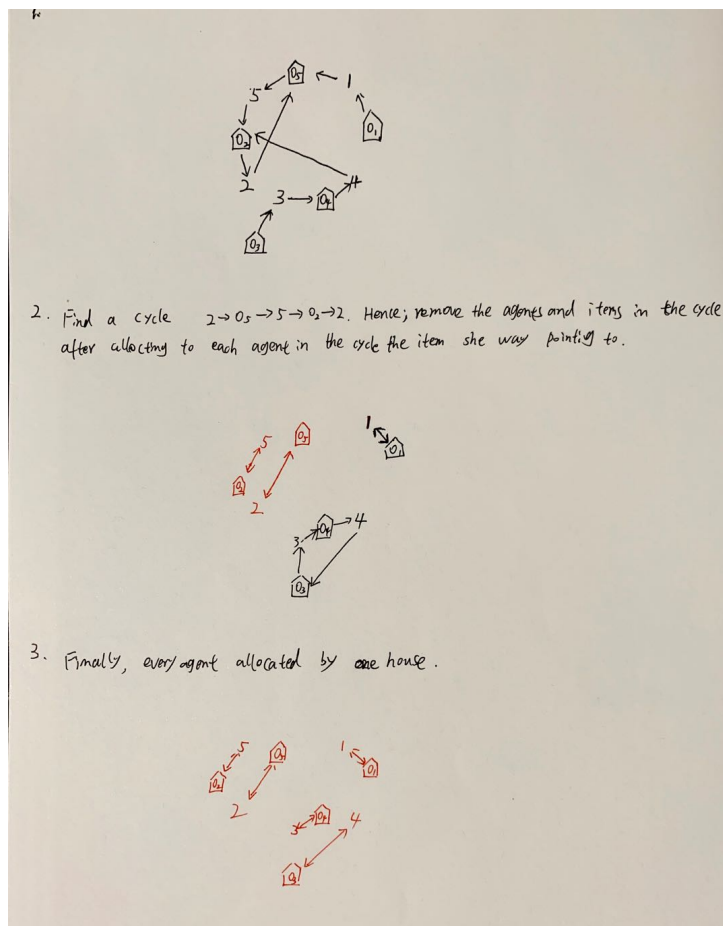 O5
1
5
O1
O2
2
4
3
O4
O3
2. Find a cycle 2→O5→5→O2→2. Hence; remove the agents and items in the cycle
after allocting to each agent in the cycle the item she way pointing to.
1
5
O5
O1
O2
2
4
O4
3
O3
3. Finally, every agent allocated by one house.
5
O5
1
O2
O1
2
O4
4
3
O3